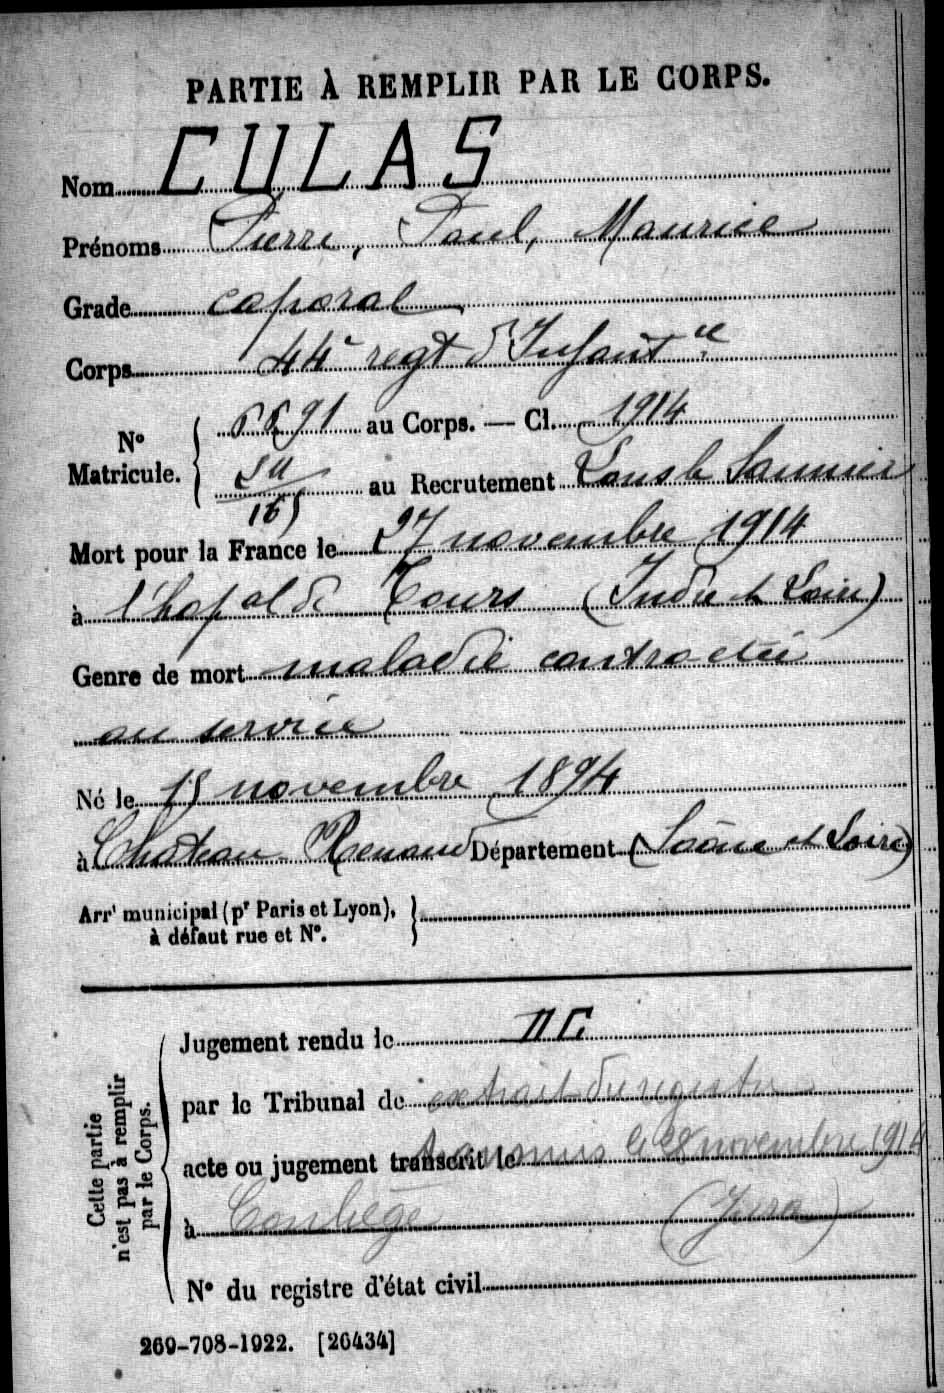 PARTIE À REMPLIR PAR LE CORPS.
Nom CULAS
Prénoms Pierre, Paul, Maurice
Grade caporal
Corps 44e regt d'Infantie
N° Matricule. 91 au Corps. — Cl. 1914
au Recrutement Lons le Saunier
Mort pour la France le 27 novembre 1914
à l'hopal de Tours (Indre et Loire)
Genre de mort maladie contractée
au service
Né le 15 novembre 1894
à Chateau Renaud Département (Saône et Loire)
Arrt municipal (pr Paris et Lyon),
à défaut rue et N°.
Cette partie
n'est pas à remplir
par le Corps.
Jugement rendu le
par le Tribunal de extrait du registre
acte ou jugement transcrit le transmis le 28 novembre 1914
à Conliège (Jura)
N° du registre d'état civil
269-708-1922. [26434]